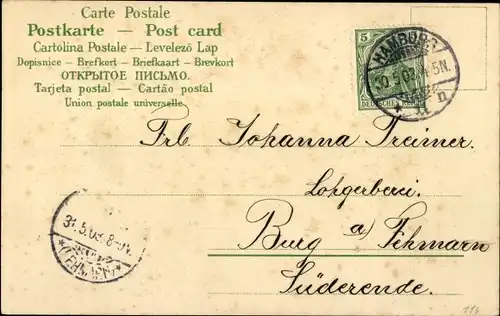 Carte Postale
Postkarte — Post card
Cartolina Postale — Levelező Lap
Dopisnice — Brefkort — Briefkaart — Brevkort
ОТКРЫТОЕ ПИСЬМО.
Tarjeta postal — Cartão postal
Union postale universelle.
5
HAMBURG
30.5.03.4-5N.
DEUTSCHES
* 11 n
Frl. Johanna Treimer.
Lohgerberei.
Burg a/ Fehmarn
Süderende.
31.5.03.8-9V.
*(FEHMARN)*